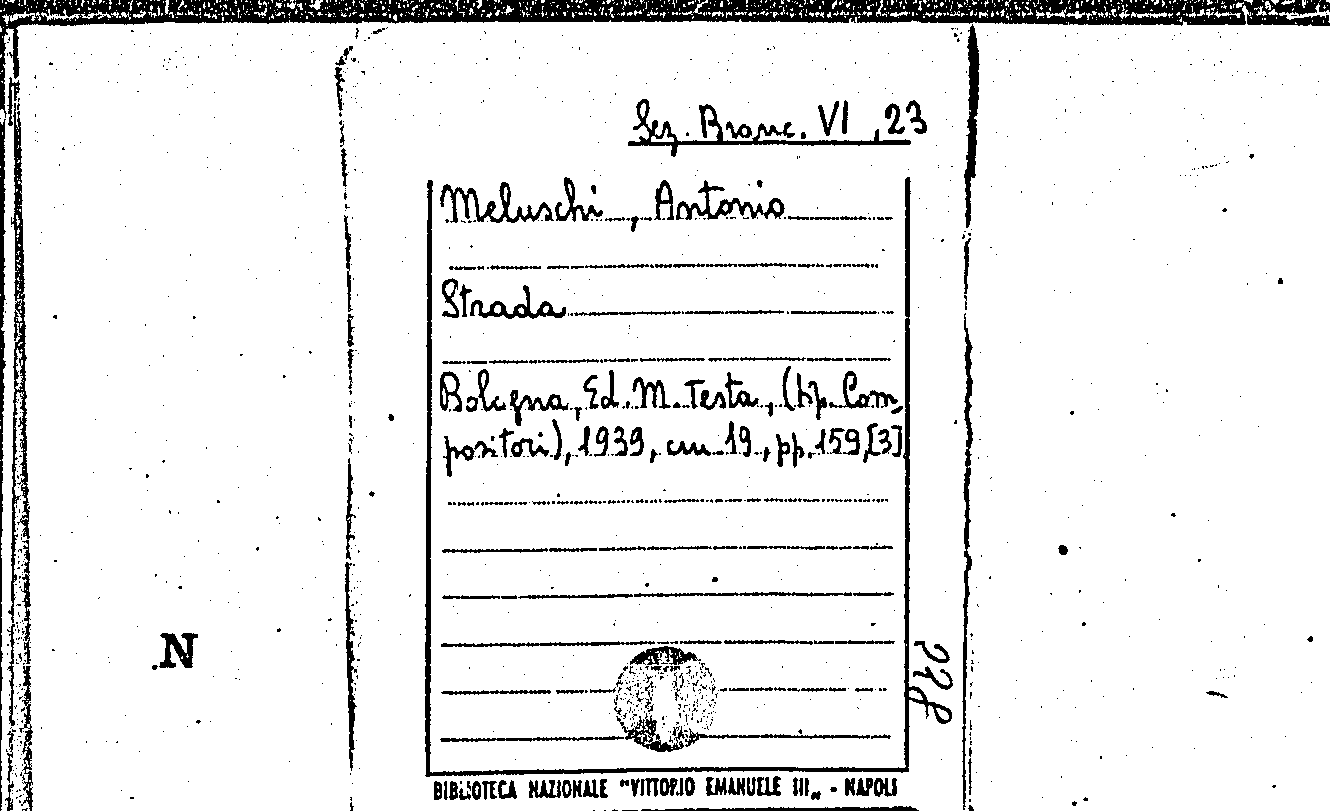 Sez. Branc. VI, 23
Meluschi, Antonio
Strada
Bologna, Ed. M. Testa, (tip. Com-
positori), 1939, cm 19, pp. 159, [3]
N
BIBLIOTECA NAZIONALE "VITTORIO EMANUELE III„ - NAPOLI